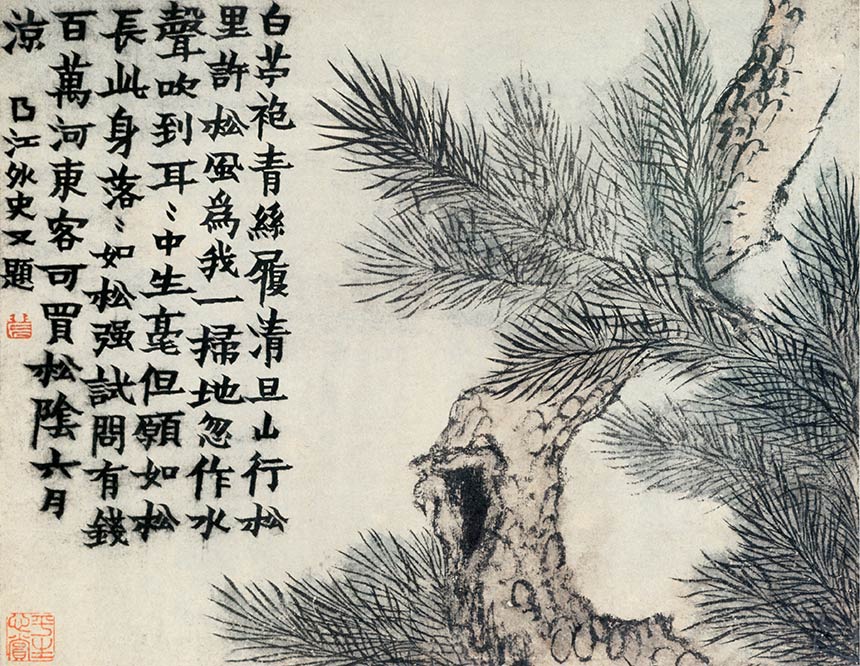 白苧袍青絲履清旦山行松
里許松風爲我一掃地忽作水
聲吹到耳〻中生毫但願如松
長此身落〻如松强試問有錢
百萬河東客可買松陰六月
涼 曲江外史又題
平生心賞